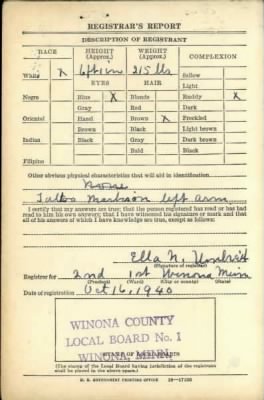 REGISTRAR'S REPORT
DESCRIPTION OF REGISTRANT
RACE HEIGHT (Approx.) WEIGHT (Approx.) COMPLEXION
White X 6ft 1 in 215 lbs Sallow
EYES HAIR Light
Negro Blue X Blonde Ruddy X
Gray Red Dark
Oriental Hazel Brown X Freckled
Brown Black Light brown
Indian Black Gray Dark brown
Bald Black
Filipino
Other obvious physical characteristics that will aid in identification
None
Tattoo left arm
I certify that my answers are true; that the person registered has read or has had
read to him his own answers; that I have witnessed his signature or mark and that
all of his answers of which I have knowledge are true, except as follows:
Ella N.
(Signature of registrar)
Registrar for 2nd 1st Winona Minn
(Precinct) (Ward) (City or county) (State)
Date of registration Oct 16, 1940
WINONA COUNTY
LOCAL BOARD No. 1
WINONA, MINN.
(STAMP OF LOCAL BOARD)
(The stamp of the Local Board having jurisdiction of the registrant
shall be placed in the above space.)
U. S. GOVERNMENT PRINTING OFFICE